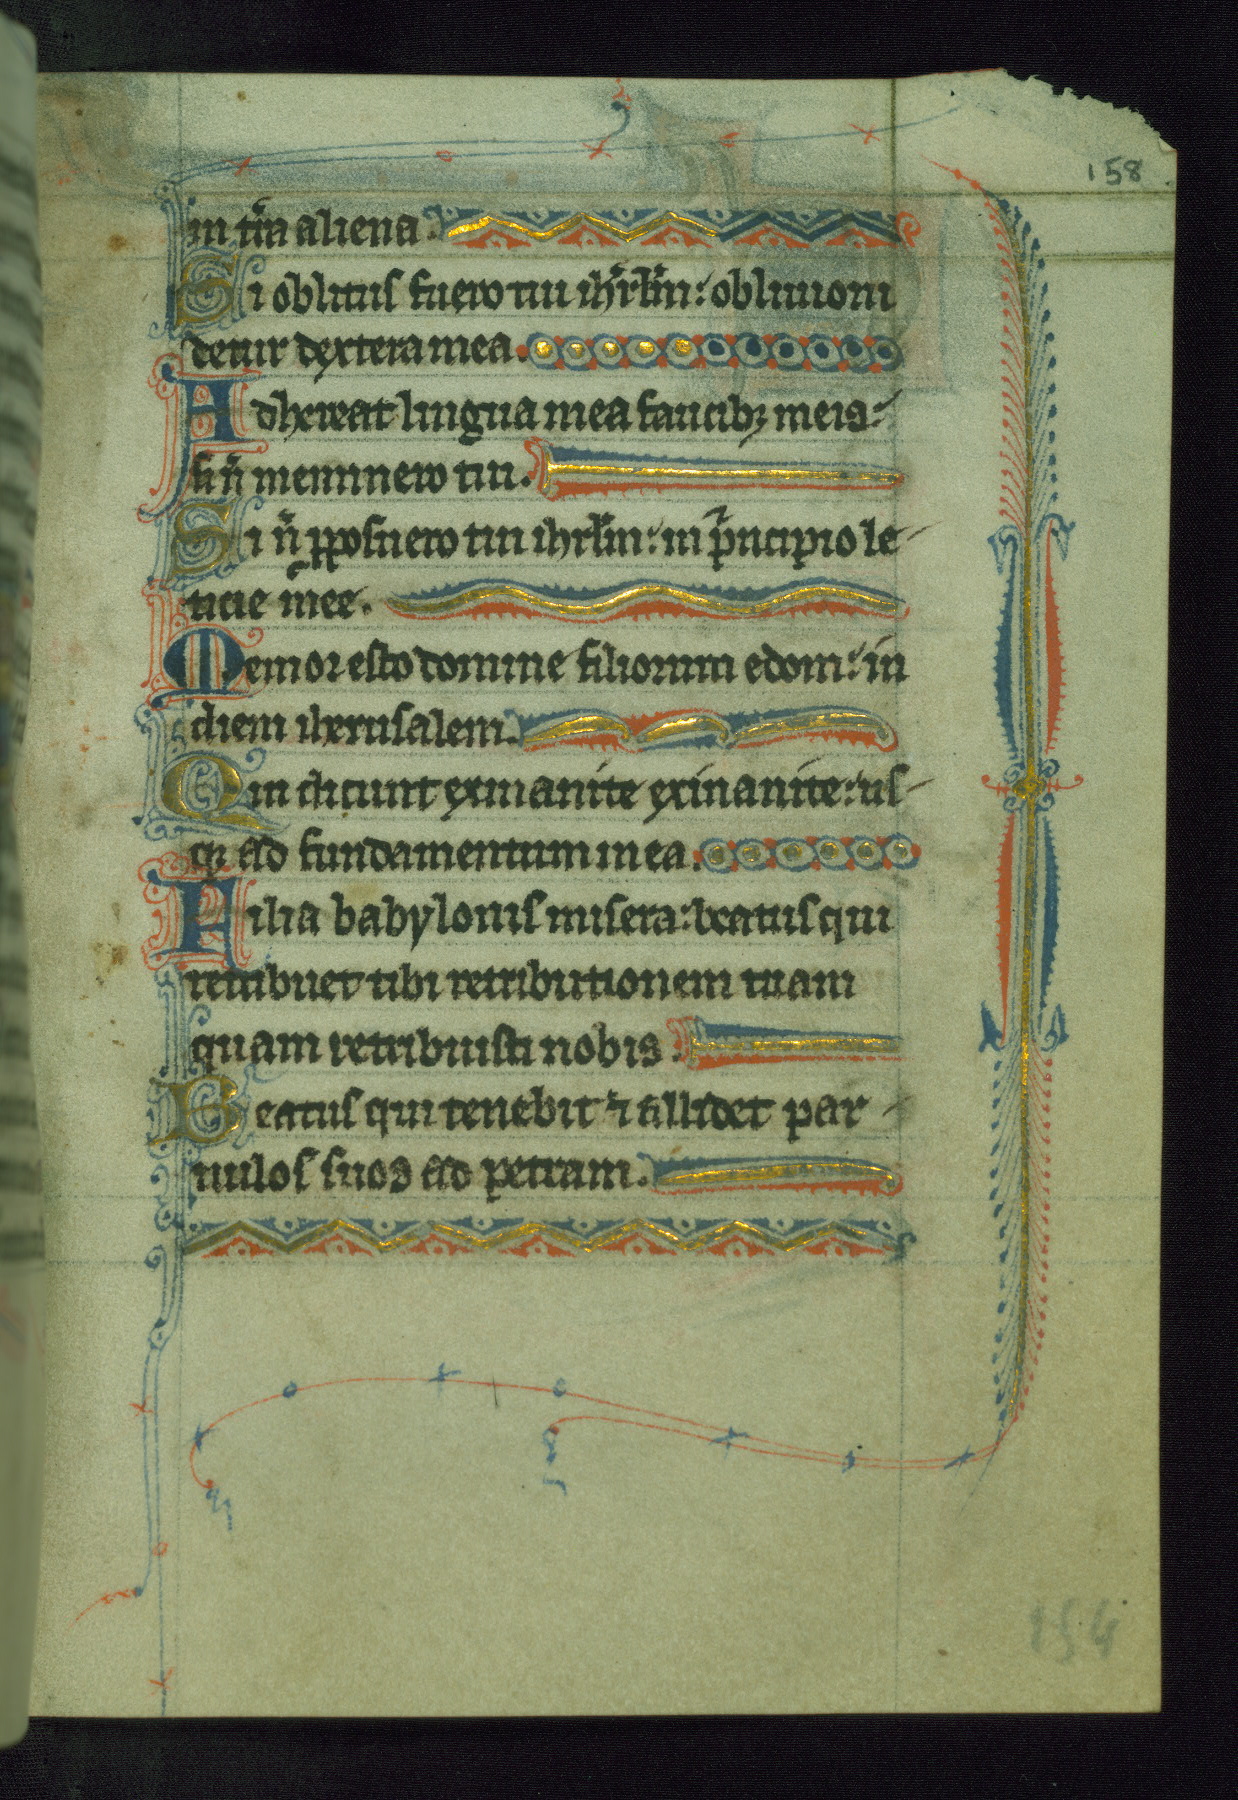 158
in tr̃a aliena.
Si oblitus fuero tui ihr̃lm̃: obliuioni
detur dextera mea.
Adhereat lingua mea faucibꝫ meis:
si ñ meminero tui.
Si ñ ꝓposuero tui ihrl̃m: in p̃ncipio le
ticie mee.
Memor esto domine filiorum edom: in
diem iherusalem.
Qui dicunt exinanite exinanite: us
qꝫ ad fundamentum in ea.
Filia babylonis misera: beatus qui
retribuet tibi retributionem tuam
quam retribuisti nobis.
Beatus qui tenebit ⁊ allidet par
uulos suos ad petram.
154